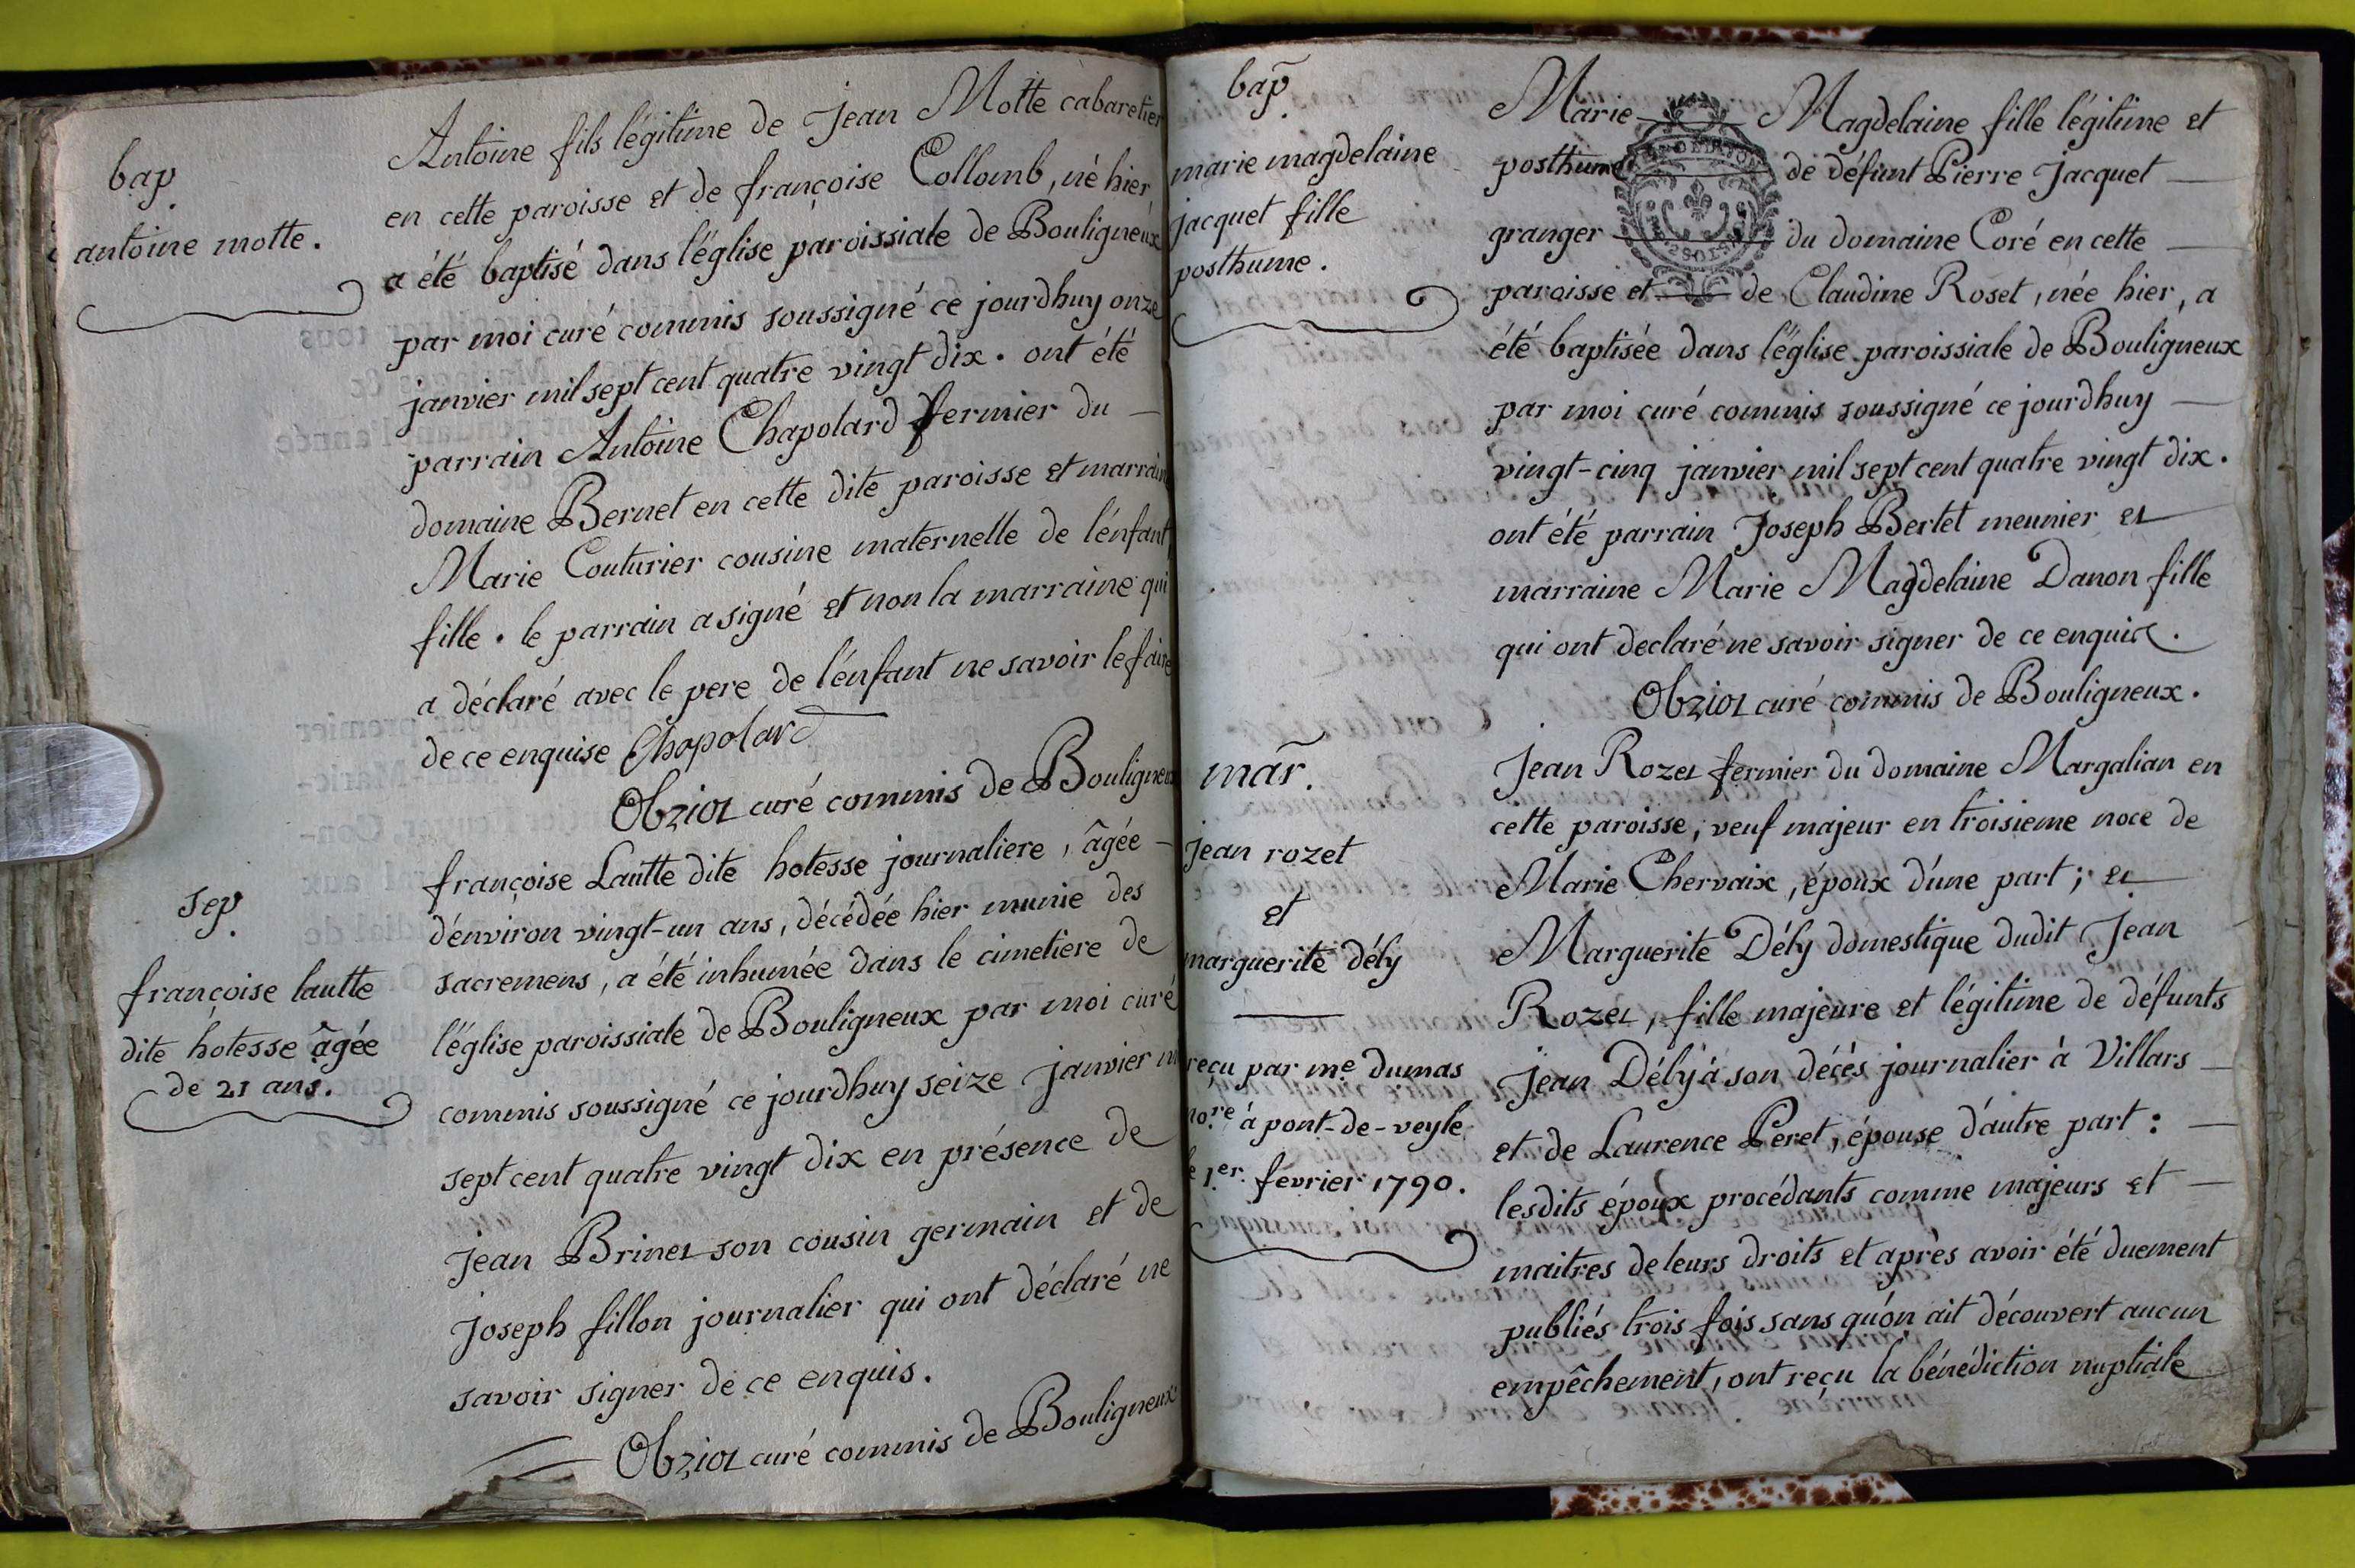 bap
antoine motte.
Antoine fils légitime de Jean Motte cabaretier
en cette paroisse et de françoise Collomb, né hier
a été baptisé dans l'église paroissiale de Bouligneux
par moi curé commis soussigné ce jourdhuy onze
janvier mil sept cent quatre vingt dix. ont été
parrain Antoine Chapolard fermier du
domaine Bernet en cette dite paroisse et marraine
Marie Couturier cousine maternelle de l'énfant
fille. le parrain a signé et non la marraine qui
a déclaré avec le pere de l'énfant ne savoir le faire
de ce enquise Chapolard
Obriot curé commis de Bouligneux
sep
françoise lautte
dite hotesse âgée
de 21 ans.
françoise Lautte dite hotesse journaliere, âgée
d'énviron vingt-un ans, décédée hier munie des
sacremens, a été inhumée dans le cimetiere de
l'église paroissiale de Bouligneux par moi curé
commis soussigné ce jourdhuy seize janvier m
sept cent quatre vingt dix en présence de
Jean Brinet son cousin germain et de
Joseph fillon journalier qui ont déclaré ne
savoir signer de ce enquis.
Obriot curé commis de Bouligneux
bap
marie magdelaine
jacquet fille
posthume.
Marie Magdelaine fille légitime et
posthume de défunt Pierre Jacquet
granger du domaine Coré en cette
paroisse et de Claudine Roset, née hier, a
été baptisée dans l'église paroissiale de Bouligneux
par moi curé commis soussigné ce jourdhuy
vingt-cinq janvier mil sept cent quatre vingt dix.
ont été parrain Joseph Bertet meunier et
marraine Marie Magdelaine Danon fille
qui ont declaré ne savoir signer de ce enquis.
Obriot curé commis de Bouligneux.
mar.
jean rozet
et
marguerite dély
reçu par me. dumas
no.re à pont-de-veyle
le 1.er fevrier 1790.
Jean Rozet fermier du domaine Margalian en
cette paroisse, veuf majeur en troisieme noce de
Marie Chervaix, époux d'une part; et
Marguerite Dély domestique dudit Jean
Rozet, fille majeure et légitime de défunts
Jean Dély à son décès journalier à Villars
et de Laurence Peret, épouse d'autre part:
lesdits époux procédants comme majeurs et
maitres de leurs droits et après avoir été duement
publiés trois fois sans qu'on ait découvert aucun
empêchement, ont reçu la bénédiction nuptiale